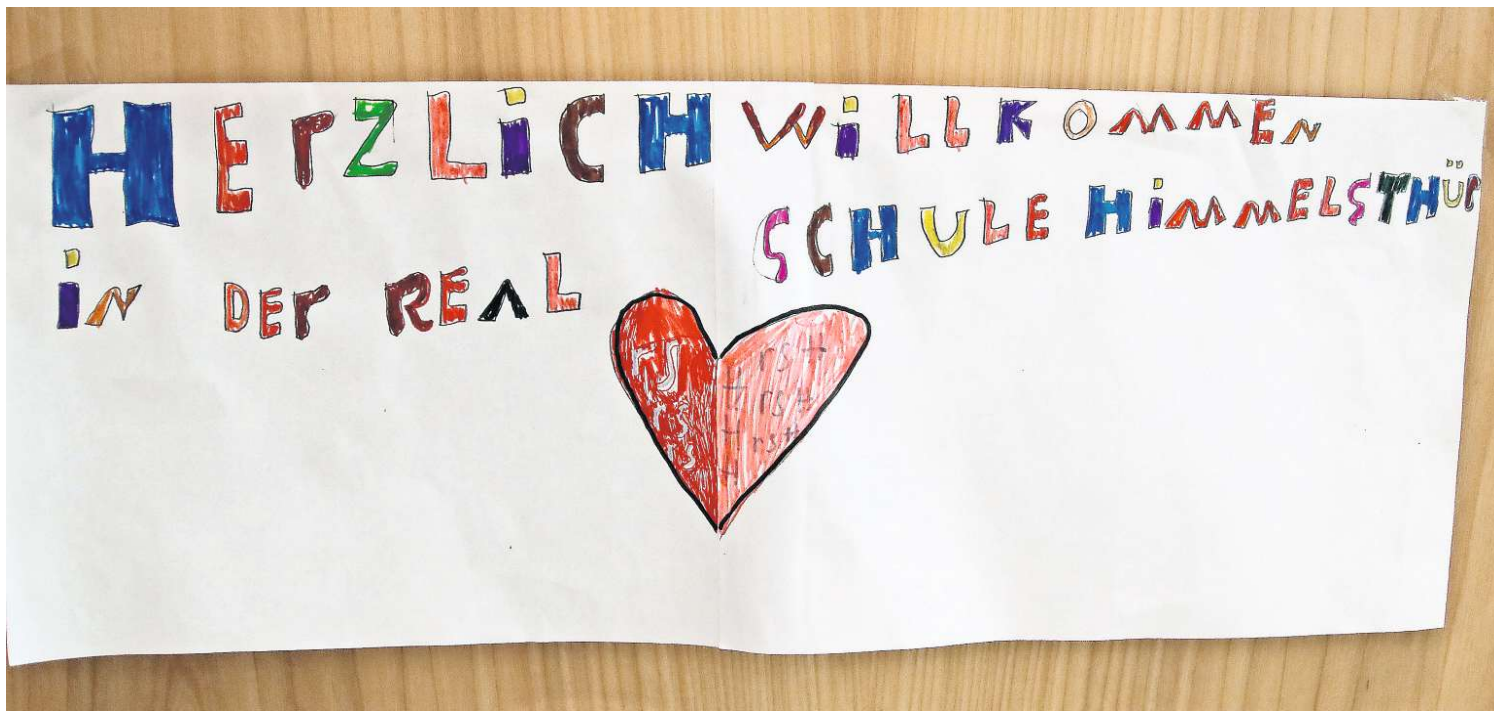 HErZLiCH WiLLKOMMEN
iN DEr REAL SCHULE HiMMELSTHÜr
rst
rst
rst